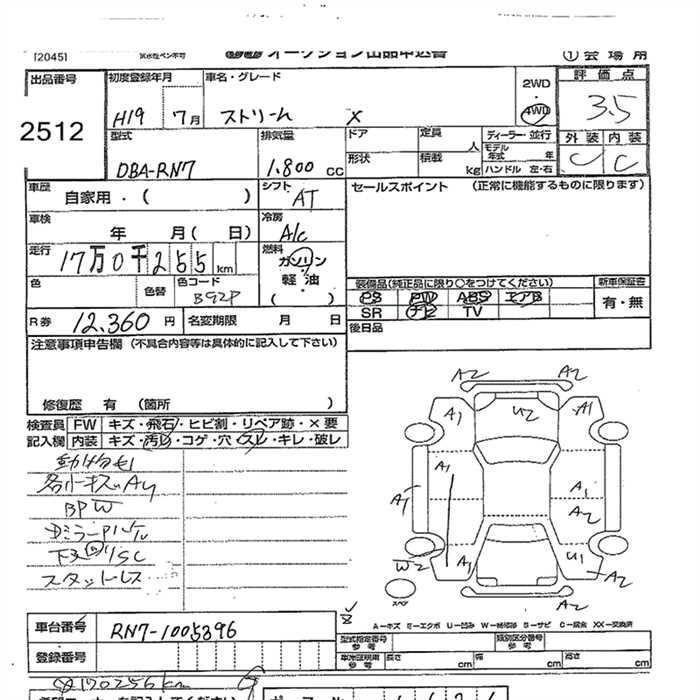 [2045]
オークション出品申込書 ①会場用
出品番号 初度登録年月 車名・グレード 2WD・4WD 評価点
2512 H19 7月 ストリーム X 3.5
型式 排気量 ドア 定員 人 ディーラー・並行 外装 内装
DBA-RN7 1.800 cc 形状 積載 kg モデル年式 年 ハンドル 左・右 C C
車歴 自家用・( ) シフト AT セールスポイント (正常に機能するものに限ります)
車検 年 月( 日) 冷房 A/C
走行 17万0千255km 燃料 ガソリン・軽油 ( )
色 色替 色コード B92P 装備品(純正品に限り○をつけてください) 新車保証書
PS PW ABS エアB 有・無
SR ナビ TV
R券 12,360円 名変期限 月 日 後日品
注意事項申告欄 (不具合内容等は具体的に記入して下さい)
修復歴 有 (箇所 )
検査員 FW キズ・飛石・ヒビ割・リペア跡・×要
記入欄 内装 キズ・汚レ・コゲ・穴・スレ・キレ・破レ
動物毛
各小キズAU
BPW
スタットレス
A2 A2
A1 U2 A1
A1 A1 A1 A2
W2 A1 U1 A2
スペア
A-キズ E-エクボ U-凹み W-補修跡 S-サビ C-腐食 XX-交換済
車台番号 RN7-1005396 型式指定番号 参考 類別区分番号 参考
登録番号 車庫証明用 参考 長さ cm 幅 cm 高さ cm
170256km